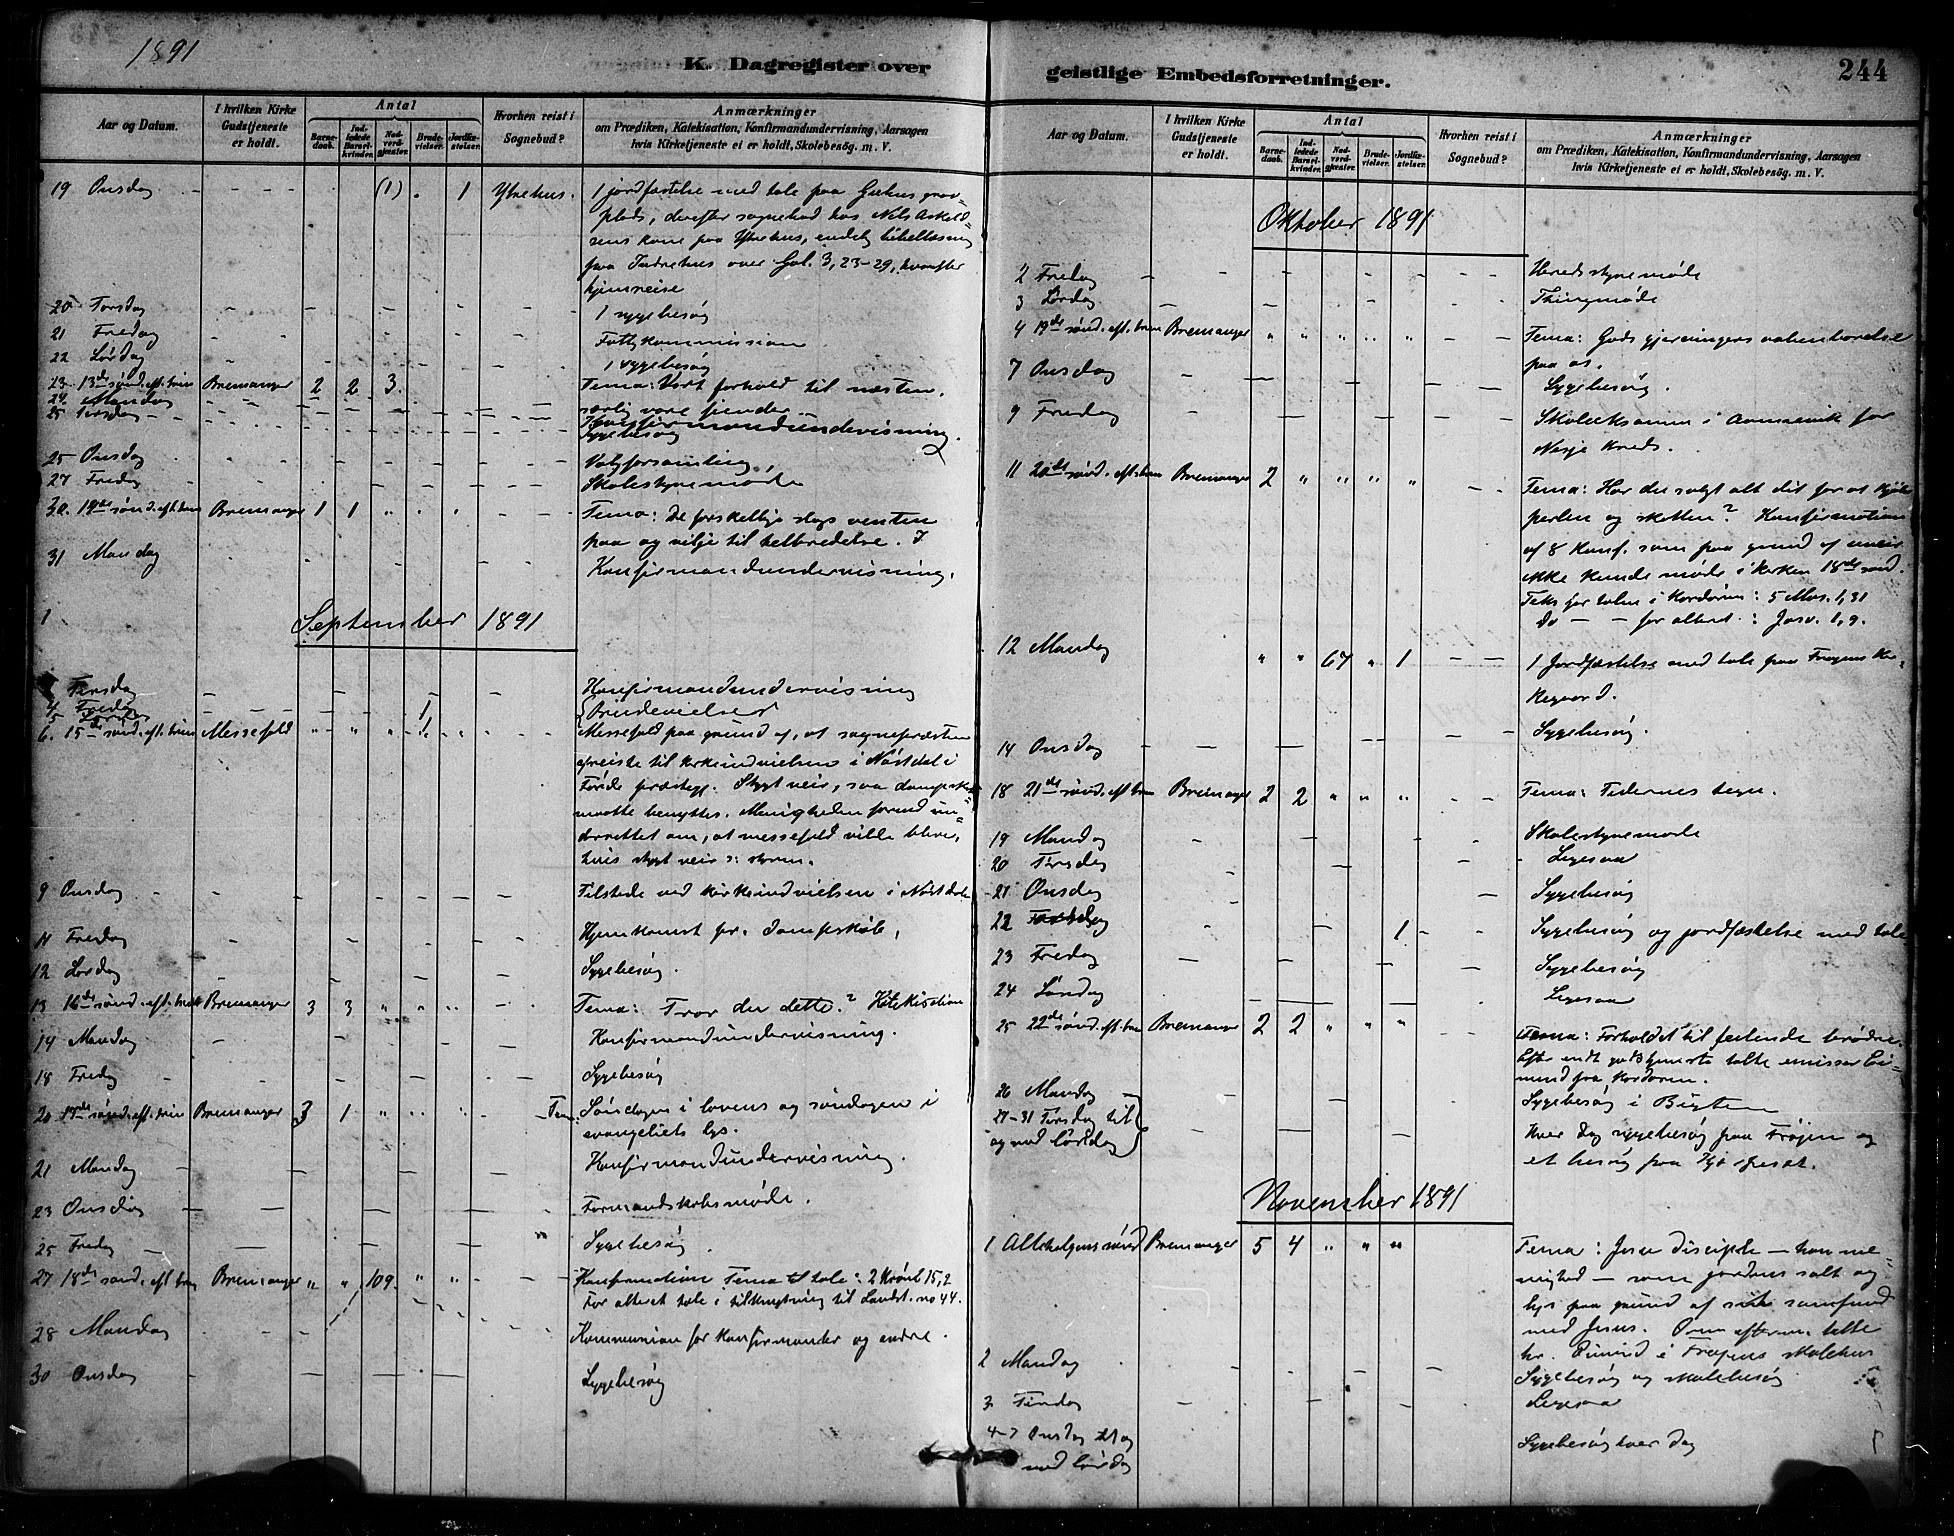 1891
K. Dagregister over
Aar og Datum.
I hvilken Kirke Gudstjeneste er holdt.
Antal
Barnedaab.
Indledede Barselkvinder.
Nadverdgjester.
Brudevielser.
Jordfæstelser.
Hvorhen reist i Sognebud?
Anmærkninger
om Prædiken, Katekisation, Konfirmandundervisning, Aarsagen
hvis Kirketjeneste ei er holdt, Skolebesøg. m. V.
19 Onsdag (1) 1 Ytrehus. 1 jordfæstelse med tale paa
plads, derefter sognebud hos Nils
kone paa Ytrehus, endelig bibellæsning
paa Indrehus over Gal. 3, 23-29, hvorefter
hjemreise
20 Torsdag 1 sygebesøg
21 Fredag Fattigkommission
22 Lørdag 1 sygebesøg
23 13de sønd. eft. trin Bremanger 2 2 3. Tema: Vort forhold til næsten,
særlig vore fiender.
24 Mandag Konfirmandundervisning.
25 Tirsdag Sygebesøg
25 Onsdag Valgforsamling
27 Fredag Skolestyremøde
30. sønd. eft. trin Bremanger 1 1 Tema: De forskellige slags venten
paa og vilje til helbredelse.
31 Mandag Konfirmandundervisning.
1 September 1891
Tirsdag Konfirmandundervisning
4 Fredag 1 Brudevielser
5 Lørdag 1
6. 15de sønd. eft. trin Messefald Messefald paa grund af, at sognepræsten
afreiste til kirkeindvielsen i Naustdal i
Førde præstegj. Stygt veir, saa dampsk.
maatte benyttes. Menigheden forud un-
derrettet om, at messefald vilde blive,
hvis stygt veir o: storm.
9 Onsdag Tilstede ved kirkeindvielsen i
11 Fredag Hjemkomst pr. dampskib.
12 Lørdag Sygebesøg.
13 16de sønd. eft. trin Bremanger 3 3 Tema: Tror du dette? Katekisation
14 Mandag Konfirmandundervisning.
18 Fredag Sygebesøg
20 17de sønd. eft. trin Bremanger 3 1 Tema: Søndagen i lovens og søndagen i
evangeliets lys.
21 Mandag Konfirmandundervisning.
23 Onsdag Formandskabsmøde.
25 Fredag Sygebesøg.
27 18de sønd. eft. trin Bremanger 109. Konfirmation Tema til tale: 2 Krøn. 15,2
For alteret tale i tilknytning til Landst. no 44.
28 Mandag Kommunion for konfirmander og andre.
30 Onsdag Sygebesøg
geistlige Embedsforretninger.
244
Aar og Datum.
I hvilken Kirke Gudstjeneste er holdt.
Antal
Barnedaab.
Indledede Barselkvinder.
Nadverdgjester.
Brudevielser.
Jordfæstelser.
Hvorhen reist i Sognebud?
Anmærkninger
om Prædiken, Katekisation, Konfirmandundervisning, Aarsagen
hvis Kirketjeneste ei er holdt, Skolebesøg. m. V.
Oktober 1891
2 Fredag Heredsstyremøde
3 Lørdag Thingmøde
4 19de sønd. eft. trin Bremanger Tema: Guds gjerningers aabenbarelse
paa os.
7 Onsdag Sygebesøg.
9 Fredag Skoleeksamen i for
kreds.
11 20de sønd. eft. trin Bremanger 2 Tema: Har du solgt alt dit for at kjøbe
perlen og skatten? Konfirmation
af 8 konf. som paa grund af uveir
ikke kunde møde i kirken 18de sønd.
Tekst for talen i kordøren: 5 Mos. 1,31
Do — — for alteret: Josv. 1,9.
12 Mandag 67 1 1 Jordfæstelse med tale paa Frøyens kir-
kegaard.
14 Onsdag Sygebesøg.
18 21de sønd. eft. trin Bremanger 2 2 Tema: Tidernes tegn.
19 Mandag Skolestyremøde
20 Tirsdag Ligesaa
21 Onsdag Sygebesøg
22 Torsdag 1 Sygebesøg og jordfæstelse med tale
23 Fredag Sygebesøg
24 Lørdag Ligesaa
25 22de sønd. eft. trin Bremanger 2 2 Tema: Forholdet til feilende brødre.
Efter endt gudstjeneste talte emissær Ei-
mund fra kordøren.
26 Mandag Sygebesøg i
27-31 Tirsdag til Hver dag sygebesøg paa Frøjen og
og med lørdag et besøg paa
November 1891
1 Allehelgenssønd. Bremanger 5 4 Tema: Jesu disciple — han me-
nighed — som jordens salt og
lys paa grund af sit samfund
med Jesus. eftermi. talte
hr. Eimund i Frøyens skolehus
2 Mandag Sygebesøg og skolebesøg
3 Tirsdag Ligesaa
4-7 Onsdag til og Sygebesøg hver dag
med lørdag